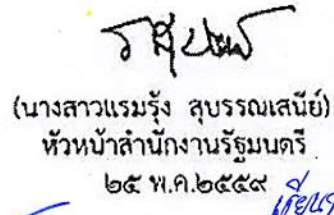 (นางสาวแรมรุ้ง สุบรรณเสนีย์)
หัวหน้าสำนักงานรัฐมนตรี
๒๕ พ.ค.๒๕๕๙
เรียน